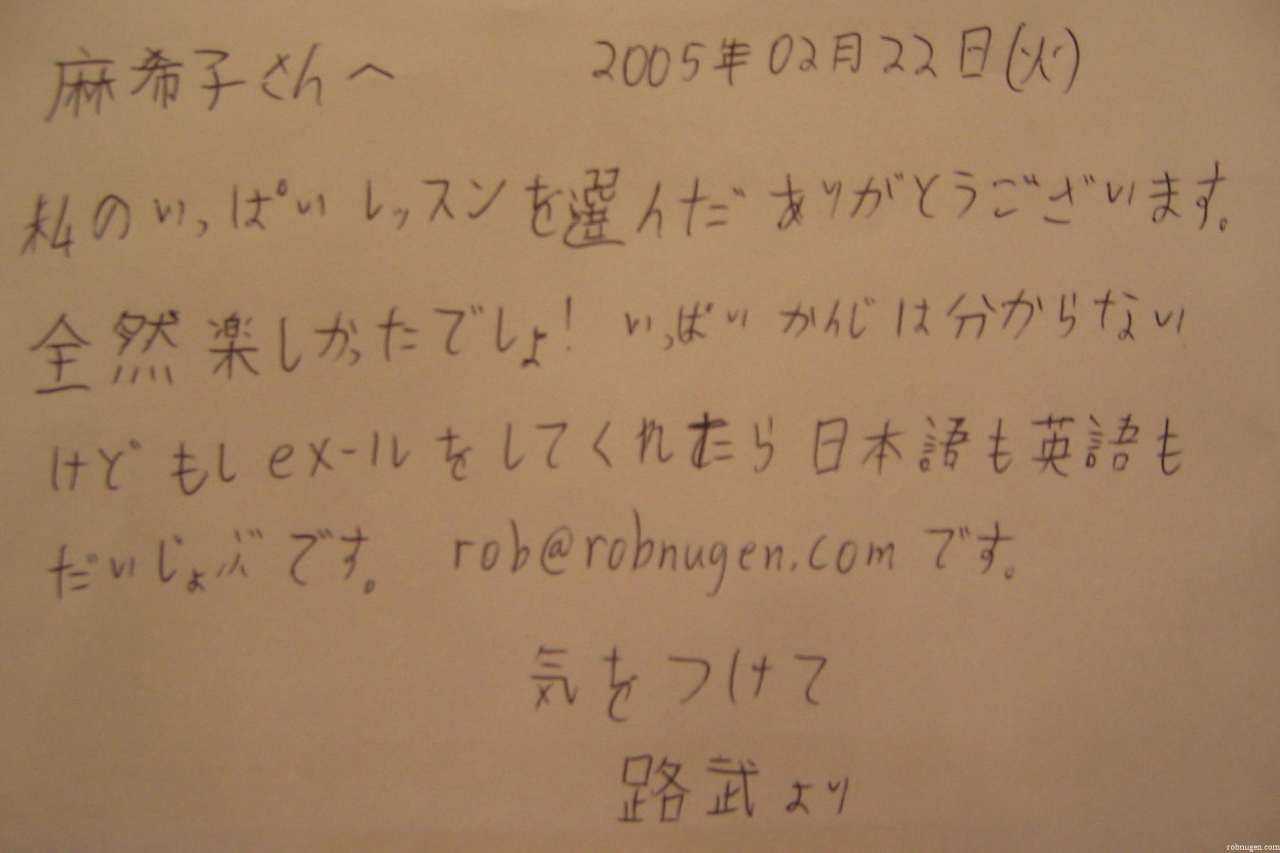 麻希子さんへ 2005年02月22日(火)
私のいっぱいレッスンを選んだありがとうございます。
全然楽しかったでしょ! いっぱいかんじは分からない
けどもしeメールをしてくれたら日本語も英語も
だいじょぶです。 rob@robnugen.comです。
気をつけて
路武より
robnugen.com